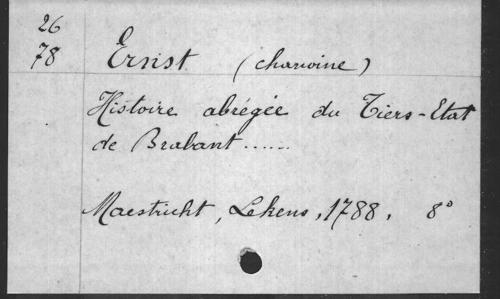 26
78
Ernst (chanoine)
Histoire abrégée du Tiers-Etat
de Brabant......
Maestricht, Lekens, 1788, 8°